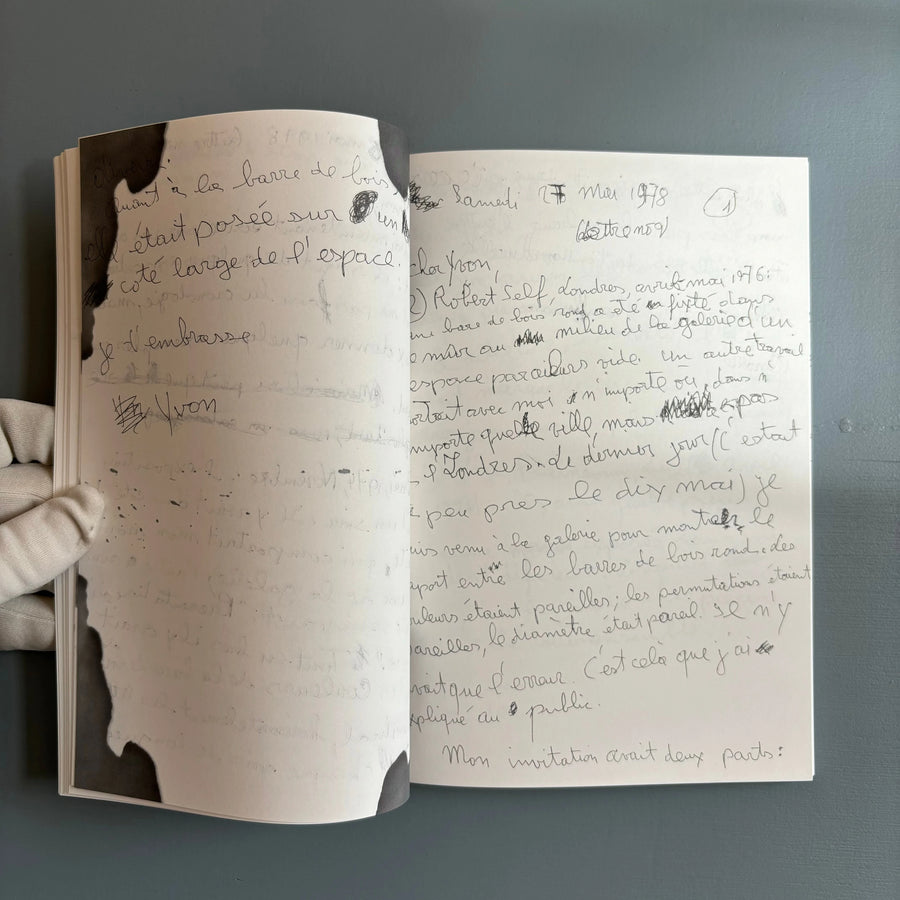 quant à la barre de bois,
elle était posée sur un
coté large de l'espace.
je t'embrasse
Yvon
Samedi 27 Mai 1978
1
cher Yvon,
2) Robert Self, Londres, avril mai 1976:
une bare de bois rond a été fixée dans
le mûr au milieu de la galerie d'un
espace par ailleurs vide. un autre travail
ortait avec moi n'importe où, dans n'
importe quelle ville, mais pas
à Londres. Le dernier jour (c'était
à peu près le dix mai) je
uis venu à la galerie pour montrer le
aport entre les barres de bois rond. des
ouleurs étaient pareilles; les permutations étaient
pareilles, le diamètre était pareil. Il n'y
vait que l'erreur. C'est celà que j'ai
xpliqué au public.
Mon invitation avait deux parts: